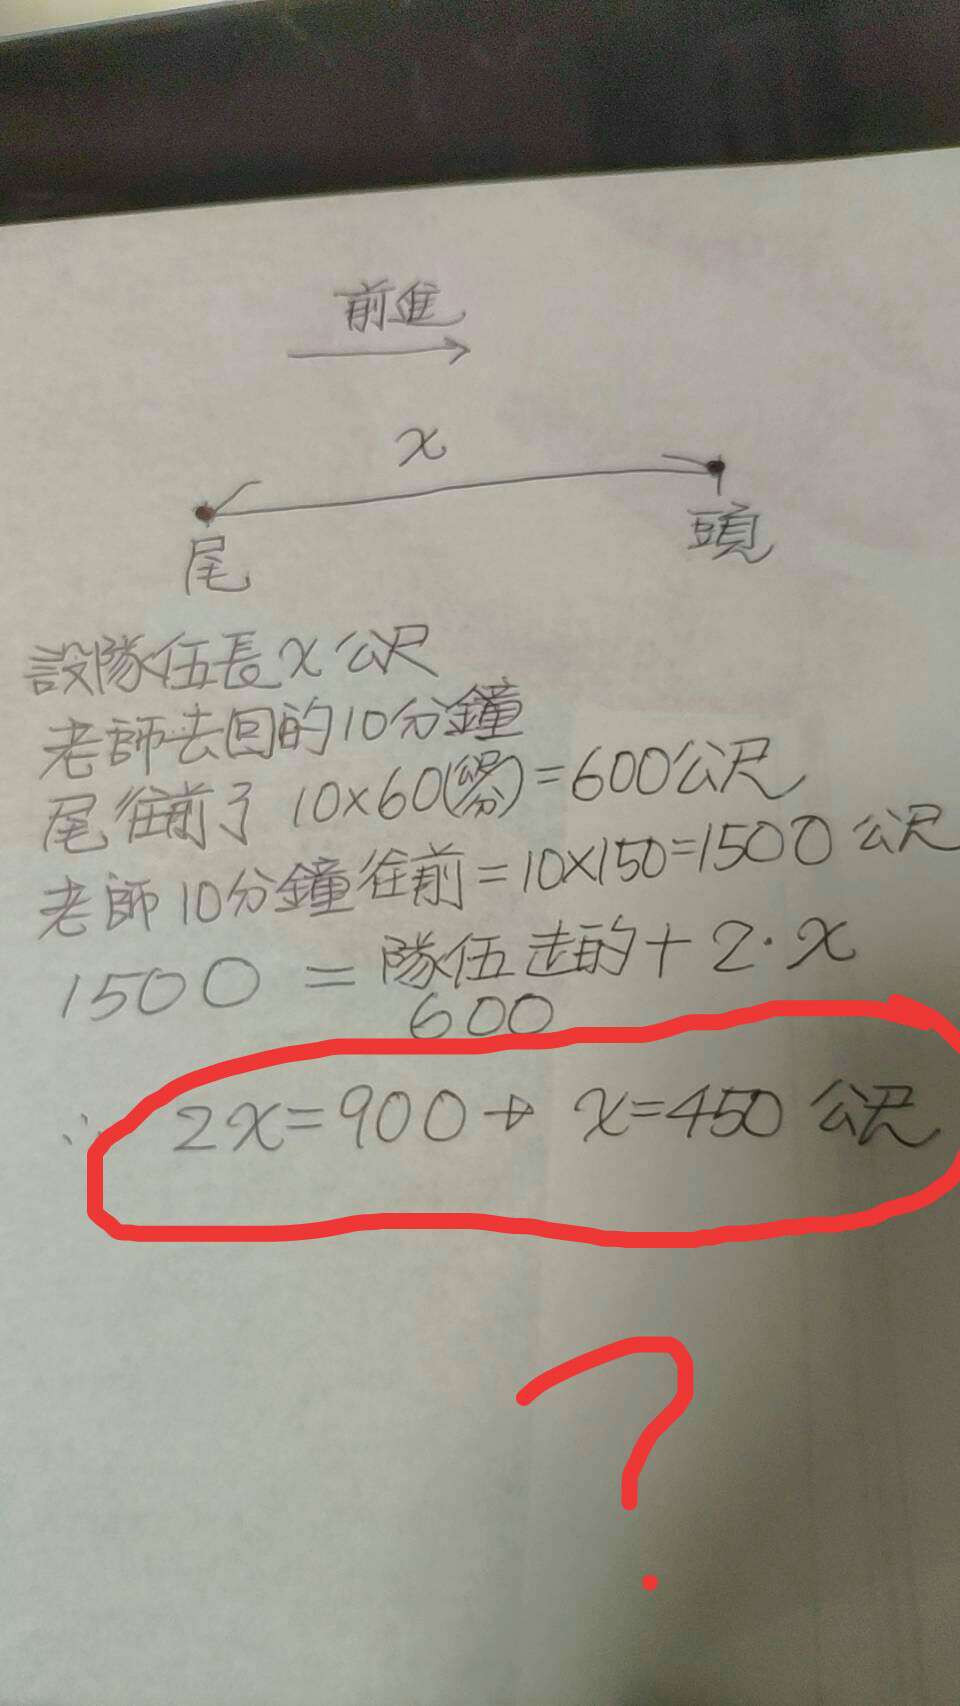 前進
x
尾
頭
設隊伍長x公尺
老師去回的10分鐘
尾往前了 10×60(公尺/分)=600公尺
老師10分鐘往前=10×150=1500公尺
1500 = 隊伍走的+2·x
600
∴ 2x=900→ x=450公尺
?